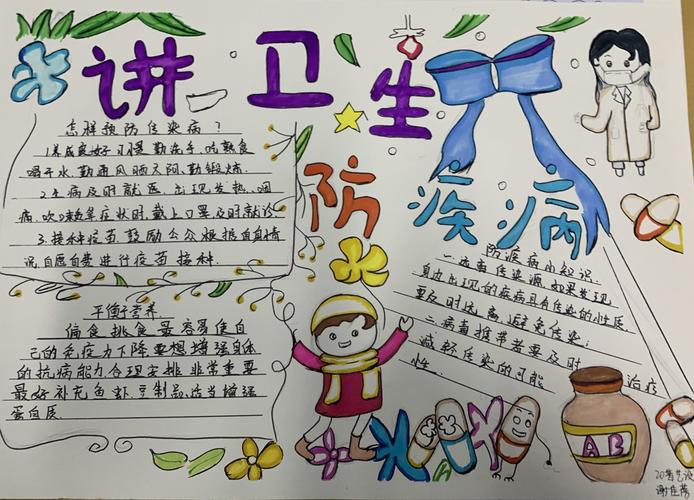 讲卫生
防疾病
怎样预防传染病？
1.养成良好习惯,勤洗手,吃熟食
喝开水,勤通风晒太阳,勤锻炼.
2.生病及时就医.出现发热,咽
痛,咳嗽等症状时,戴上口罩及时就诊
3.接种疫苗.鼓励公众根据自身情
况自愿自费进行疫苗接种.
平衡营养.
偏食挑食最容易使自
己的免疫力下降要想增强自体
的抗病能力合理安排非常重要
最好补充鱼虾豆制品,适当增强
蛋白质.
防疾病小知识.
一.远离传染源.如果发现
身边出现的疾病具有传染的性质.
要及时远离避免传染;
二.病毒携带者要及时治疗
减轻传染的可能
性.
AB